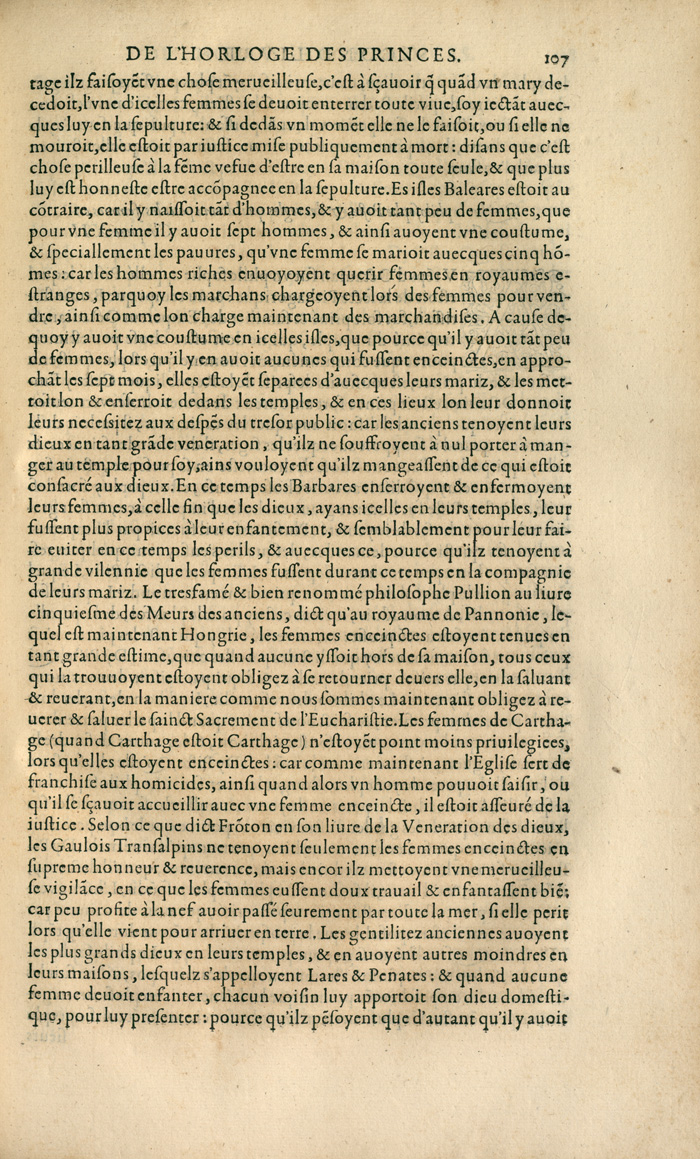 DE L'HORLOGE DES PRINCES. 107
tage ilz faiſoyẽt vne choſe merueilleuſe,c'eſt à ſçauoir q̃ quãd vn mary de-
cedoit,l'vne d'icelles femmes ſe deuoit enterrer toute viue,ſoy iectãt auec-
ques luy en la ſepulture: & ſi dedãs vn momẽt elle ne le faiſoit,ou ſi elle ne
mouroit,elle eſtoit par iuſtice miſe publiquement à mort : diſans que c'eſt
choſe perilleuſe à la fẽme vefue d'eſtre en ſa maiſon toute ſeule,& que plus
luy eſt honneſte eſtre accõpagnee en la ſepulture.Es iſles Baleares eſtoit au
cõtraire, car il y naiſſoit tãt d'hommes,& y auoit tant peu de femmes,que
pour vne femme il y auoit ſept hommes, & ainſi auoyent vne couſtume,
& ſpeciallement les pauures, qu'vne femme ſe marioit auecques cinq hõ-
mes : car les hommes riches enuoyoyent querir femmes en royaumes e-
ſtranges, parquoy les marchans chargeoyent lors des femmes pour ven-
dre, ainſi comme lon charge maintenant des marchandiſes. A cauſe de-
quoy y auoit vne couſtume en icelles iſles,que pource qu'il y auoit tãt peu
de femmes, lors qu'il y en auoit aucunes qui fuſſent enceinctes,en appro-
chãt les ſept mois, elles eſtoyẽt ſeparees d'auecques leurs mariz, & les met-
toit lon & enſerroit dedans les temples, & en ces lieux lon leur donnoit
leurs neceſſitez aux deſpẽs du treſor public : car les anciens tenoyent leurs
dieux en tant grãde veneration, qu'ilz ne ſouffroyent à nul porter à man-
ger au temple pour ſoy,ains vouloyent qu'ilz mangeaſſent de ce qui eſtoit
conſacré aux dieux.En ce temps les Barbares enſerroyent & enfermoyent
leurs femmes,à celle fin que les dieux, ayans icelles en leurs temples, leur
fuſſent plus propices à leur enfantement, & ſemblablement pour leur fai-
re euiter en ce temps les perils, & auecques ce, pource qu'ilz tenoyent à
grande vilennie que les femmes fuſſent durant ce temps en la compagnie
de leurs mariz. Le tresfamé & bien renommé philoſophe Pullion au liure
cinquieſme des Meurs des anciens, dict qu'au royaume de Pannonie, le-
quel eſt maintenant Hongrie, les femmes enceinctes eſtoyent tenues en
tant grande eſtime,que quand aucune yſſoit hors de ſa maiſon, tous ceux
qui la trouuoyent eſtoyent obligez à ſe retourner deuers elle,en la ſaluant
& reuerant,en la maniere comme nous ſommes maintenant obligez à re-
uerer & ſaluer le ſainct Sacrement de l'Euchariſtie.Les femmes de Cartha-
ge (quand Carthage eſtoit Carthage) n'eſtoyẽt point moins priuilegiees,
lors qu'elles eſtoyent enceinctes : car comme maintenant l'Egliſe ſert de
franchiſe aux homicides, ainſi quand alors vn homme pouuoit ſaiſir, ou
qu'il ſe ſçauoit accueillir auec vne femme enceincte, il eſtoit aſſeuré de la
iuſtice. Selon ce que dict Frõton en ſon liure de la Veneration des dieux,
les Gaulois Tranſalpins ne tenoyent ſeulement les femmes enceinctes en
ſupreme honneur & reuerence, mais encor ilz mettoyent vne merueilleu-
ſe vigilãce, en ce que les femmes euſſent doux trauail & enfantaſſent biẽ:
car peu profite à la nef auoir paſſé ſeurement par toute la mer, ſi elle perit
lors qu'elle vient pour arriuer en terre. Les gentilitez anciennes auoyent
les plus grands dieux en leurs temples, & en auoyent autres moindres en
leurs maiſons, leſquelz s'appelloyent Lares & Penates : & quand aucune
femme deuoit enfanter, chacun voiſin luy apportoit ſon dieu domeſti-
que, pour luy preſenter : pource qu'ilz pẽſoyent que d'autant qu'il y auoit